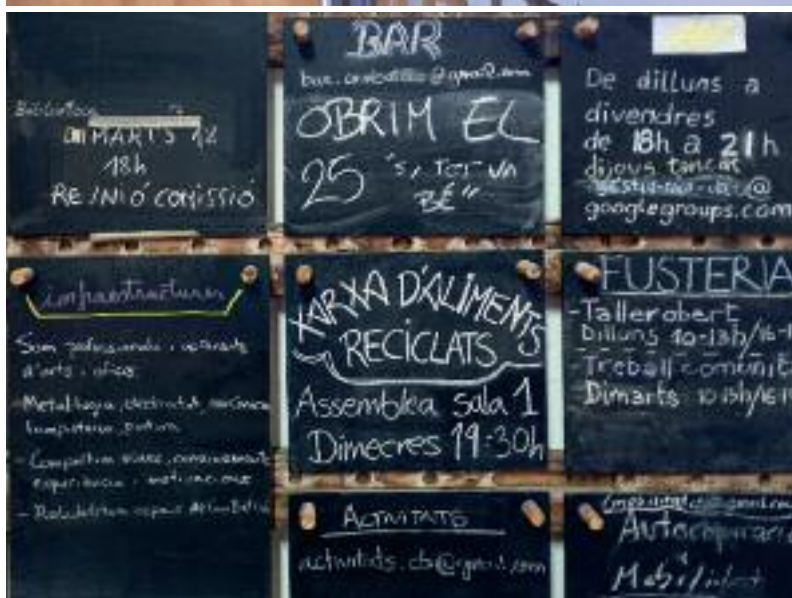 Biblioteca
DIMARTS 12
18h
REUNIÓ COMISSIÓ
BAR
OBRIM EL
25 "SI TOT VA
BÉ"
De dilluns a
divendres
de 18h a 21h
dijous tancat
googlegroups.com
infraestructures
Som professionals i
d'arts i oficis
- Metal·lúrgia, electricitat,
fusteria, pintura
- Compartim eines, coneixements
experiència i motivacions
- Rehabilitem espais
XARXA D'ALIMENTS
RECICLATS
Assemblea sala 1
Dimecres 19:30h
FUSTERIA
- Taller obert
Dilluns 10-13h/16-1
- Treball comunit
Dimarts 10-13h/16-1
ACTIVITATS
activitats.cb@gmail.com